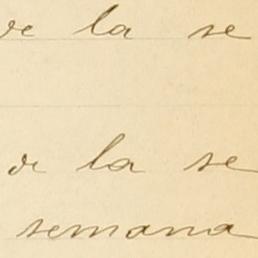 de la se
de la se
semana